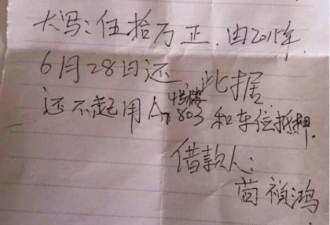 大写:伍拾万正.由2015年.
6月28日还,此据
还不起用 803和车位抵押.
借款人:
祯鸿